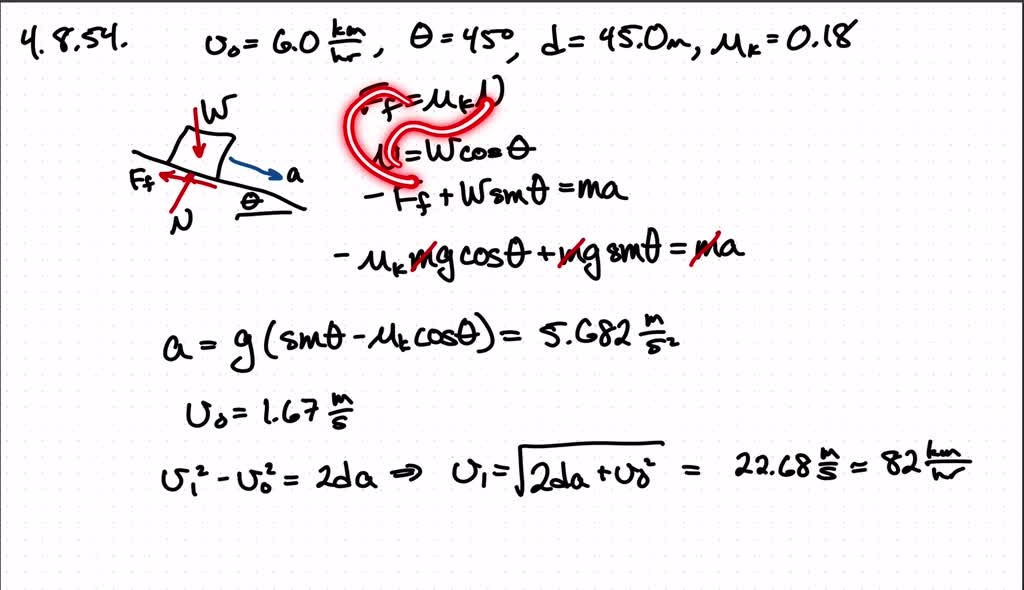 4.8.54. v₀ = 6.0 km/hr, θ = 45°, d = 45.0m, μₖ = 0.18
W
F_f = μₖN
N = W cos θ
a
F_f
θ
- F_f + W sin θ = ma
N
- μₖ mg cos θ + mg sin θ = ma
a = g (sin θ - μₖ cos θ) = 5.682 m/s²
v₀ = 1.67 m/s
v₁² - v₀² = 2da ⇒ v₁ = √(2da + v₀²) = 22.68 m/s ≈ 82 km/hr